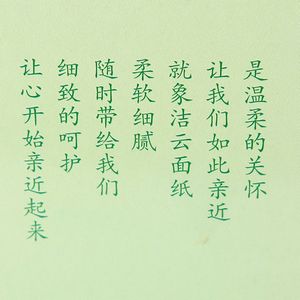 是温柔的关怀
让我们如此亲近
就象洁云面纸
柔软细腻
随时带给我们
细致的呵护
让心开始亲近起来